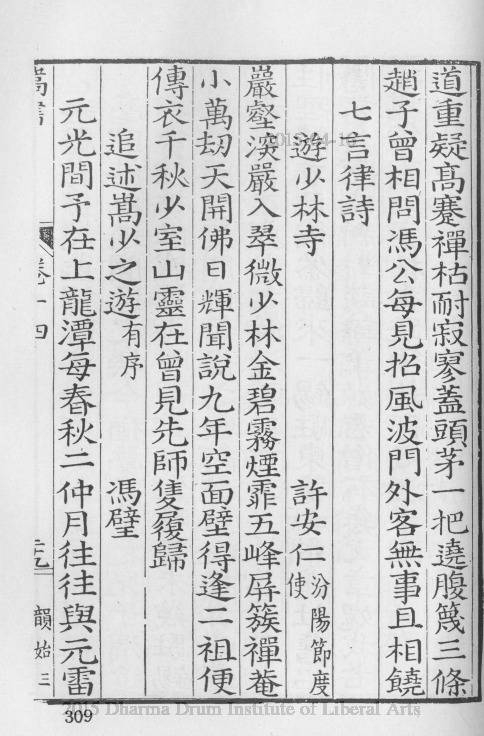 道重疑高蹇禪枯耐寂寥蓋頭茅一把遶腹篾三條
趙子曾相問馮公每見招風波門外客無事且相饒
七言律詩
遊少林寺 許安仁 汾陽節度使
巖壑深嚴入翠微少林金碧霧煙霏五峰屏簇禪菴
小萬劫天開佛日輝聞說九年空面壁得逢二祖便
傳衣千秋少室山靈在曾見先師隻履歸
追述嵩少之遊 有序 馮璧
元光間予在上龍潭每春秋二仲月往往與元雷
嵩書 卷十四 韻始三
309
2015 Dharma Drum Institute of Liberal Arts